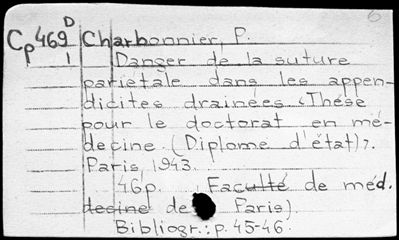 6
D
Cp 469 Charbonnier, P.
1
Danger de la suture
pariétale dans les appen-
dicites drainées <Thèse
pour le doctorat en mé-
decine. (Diplome d'état)>.
Paris, 1943.
46p. Faculté de méd.
decine de Paris).
Bibliogr.: p. 45-46.